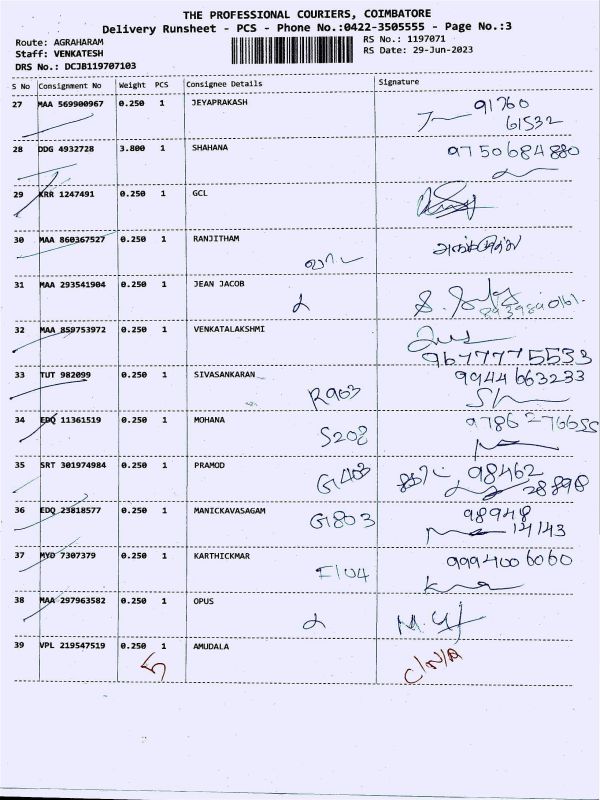 THE PROFESSIONAL COURIERS, COIMBATORE
Delivery Runsheet - PCS - Phone No.:0422-3505555 - Page No.:3
Route: AGRAHARAM
Staff: VENKATESH
DRS No.: DCJB119707103
RS No.: 1197071
RS Date: 29-Jun-2023
S No Consignment No Weight PCS Consignee Details Signature
27 MAA 569900967 0.250 1 JEYAPRAKASH 91760
61532
28 DDG 4932728 3.800 1 SHAHANA 9750684880
29 KRR 1247491 0.250 1 GCL
30 MAA 860367527 0.250 1 RANJITHAM
31 MAA 293541904 0.250 1 JEAN JACOB
32 MAA 859753972 0.250 1 VENKATALAKSHMI
9677775533
33 TUT 982099 0.250 1 SIVASANKARAN 9944663233
R903
34 EDQ 11361519 0.250 1 MOHANA 9786276655
S208
35 SRT 301974984 0.250 1 PRAMOD G403 98462
28898
36 EDQ 23818577 0.250 1 MANICKAVASAGAM G803 98948
14143
37 MYD 7307379 0.250 1 KARTHICKMAR 9994006060
F104
38 MAA 297963582 0.250 1 OPUS
39 VPL 219547519 0.250 1 AMUDALA C/N/A
5